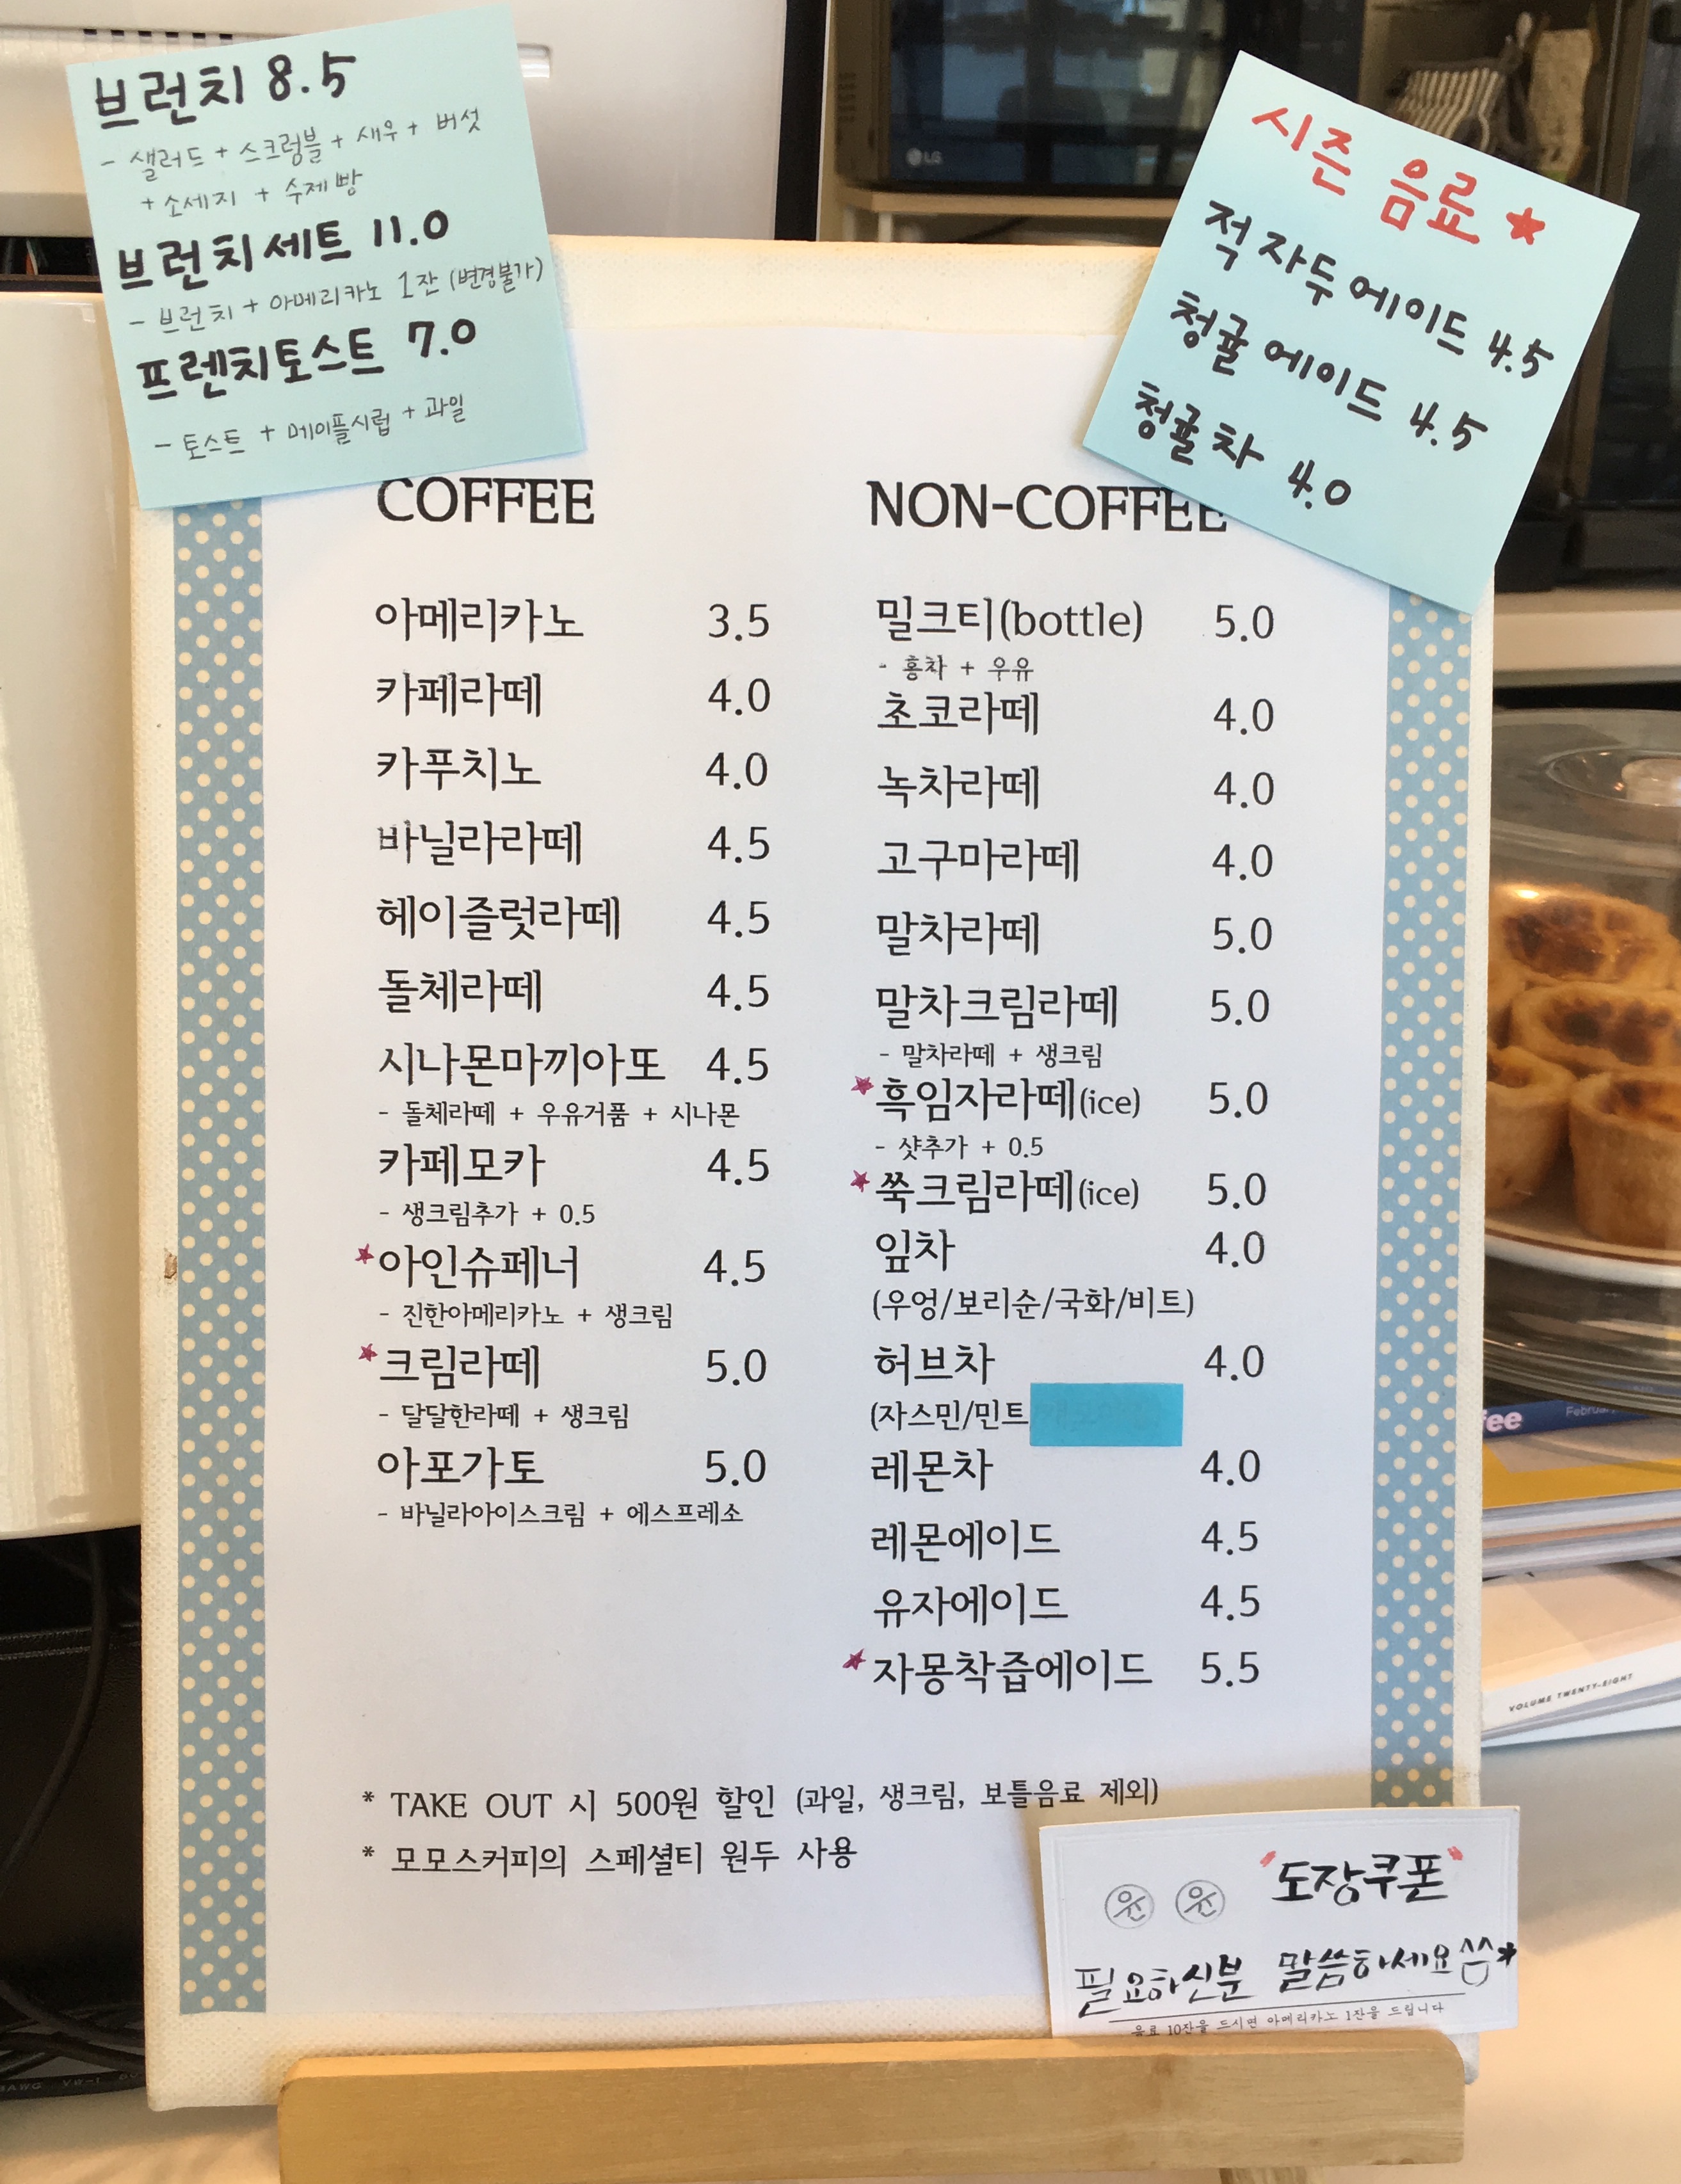 브런치 8.5
- 샐러드 + 스크럼블 + 새우 + 버섯
+ 소세지 + 수제빵
브런치세트 11.0
- 브런치 + 아메리카노 1잔 (변경불가)
프렌치토스트 7.0
- 토스트 + 메이플시럽 + 과일
시즌 음료 ★
적자두에이드 4.5
청귤에이드 4.5
청귤차 4.0
LG
COFFEE
아메리카노 3.5
카페라떼 4.0
카푸치노 4.0
바닐라라떼 4.5
헤이즐럿라떼 4.5
돌체라떼 4.5
시나몬마끼아또 4.5
- 돌체라떼 + 우유거품 + 시나몬
카페모카 4.5
- 생크림추가 + 0.5
★아인슈페너 4.5
- 진한아메리카노 + 생크림
★크림라떼 5.0
- 달달한라떼 + 생크림
아포가토 5.0
- 바닐라아이스크림 + 에스프레소
NON-COFFEE
밀크티(bottle) 5.0
- 홍차 + 우유
초코라떼 4.0
녹차라떼 4.0
고구마라떼 4.0
말차라떼 5.0
말차크림라떼 5.0
- 말차라떼 + 생크림
★흑임자라떼(ice) 5.0
- 샷추가 + 0.5
★쑥크림라떼(ice) 5.0
잎차 4.0
(우엉/보리순/국화/비트)
허브차 4.0
(자스민/민트
레몬차 4.0
레몬에이드 4.5
유자에이드 4.5
★자몽착즙에이드 5.5
* TAKE OUT 시 500원 할인 (과일, 생크림, 보틀음료 제외)
* 모모스커피의 스페셜티 원두 사용
윤 윤 "도장쿠폰"
필요하신분 말씀하세요^^*
음료 10잔을 드시면 아메리카노 1잔을 드립니다
VOLUME TWENTY-EIGHT